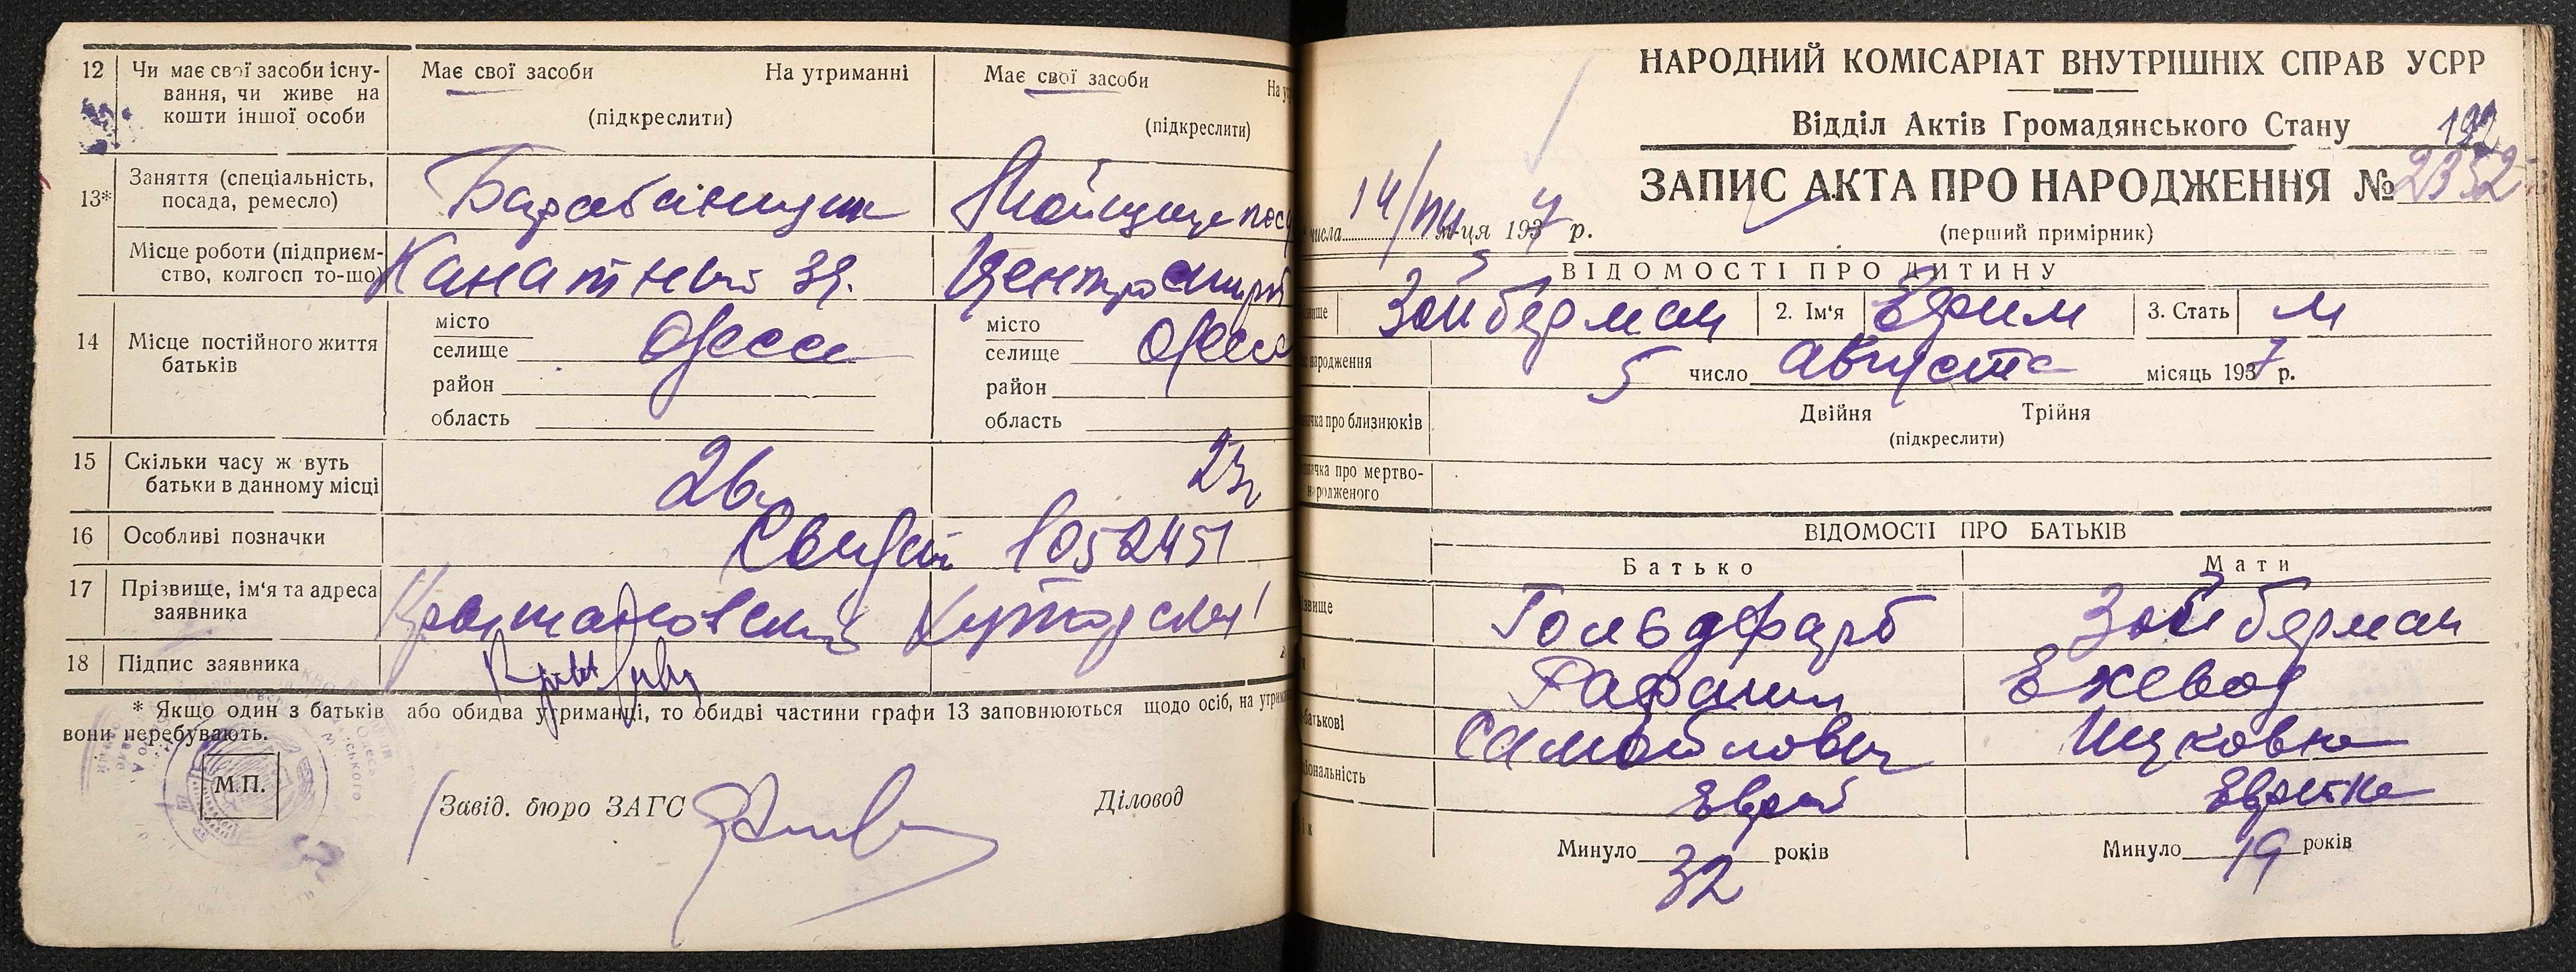 12 Чи має свої засоби існу- Має свої засоби На утриманні Має свої засоби На у
вання, чи живе на
кошти іншої особи (підкреслити) (підкреслити)
13* Заняття (спеціальність,
посада, ремесло) Барабанщик Мойщица посу
Місце роботи (підприєм-
ство, колгосп то-що) Канатный зд.
14 Місце постійного життя
батьків
місто місто
селище Одесса селище Одесса
район район
область область
15 Скільки часу ж вуть
батьки в данному місці 26 23
16 Особливі позначки 1052451
17 Прізвище, ім'я та адреса
заявника
18 Підпис заявника
* Якщо один з батьків або обидва утриманці, то обидві частини графи 13 заповнюються щодо осіб, на утрима
вони перебувають.
М.П.
Завід. бюро ЗАГС Діловод
НАРОДНИЙ КОМІСАРІАТ ВНУТРІШНІХ СПРАВ УСРР
Відділ Актів Громадянського Стану 192
ЗАПИС АКТА ПРО НАРОДЖЕННЯ № 2352
числа 14/VIII м-ця 1937 р.
(перший примірник)
ВІДОМОСТІ ПРО ДИТИНУ
Зойберман 2. Ім'я Ефим 3. Стать м
народження 5 число августа місяць 1937 р.
про близнюків Двійня Трійня
(підкреслити)
про мертво-
народженого
ВІДОМОСТІ ПРО БАТЬКІВ
Батько Мати
звище Гольдфарб Зойберман
Рафаил
батькові Самойлович Ицковна
ціональність Еврей Еврейка
Минуло 32 років Минуло 19 років